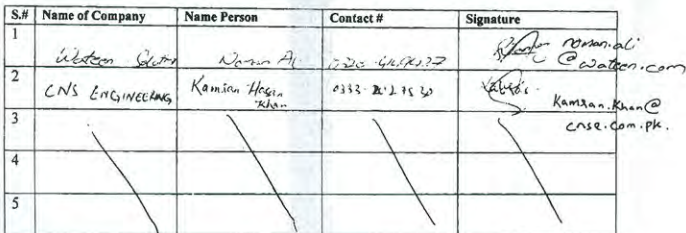 S.# Name of Company Name Person Contact # Signature
1
Wateen Noman noman.ali
@wateen.com
2
CNS ENGINEERING Kamran Hasan 0333
Khan
Kamran.Khan@
cnse.com.pk.
3
4
5